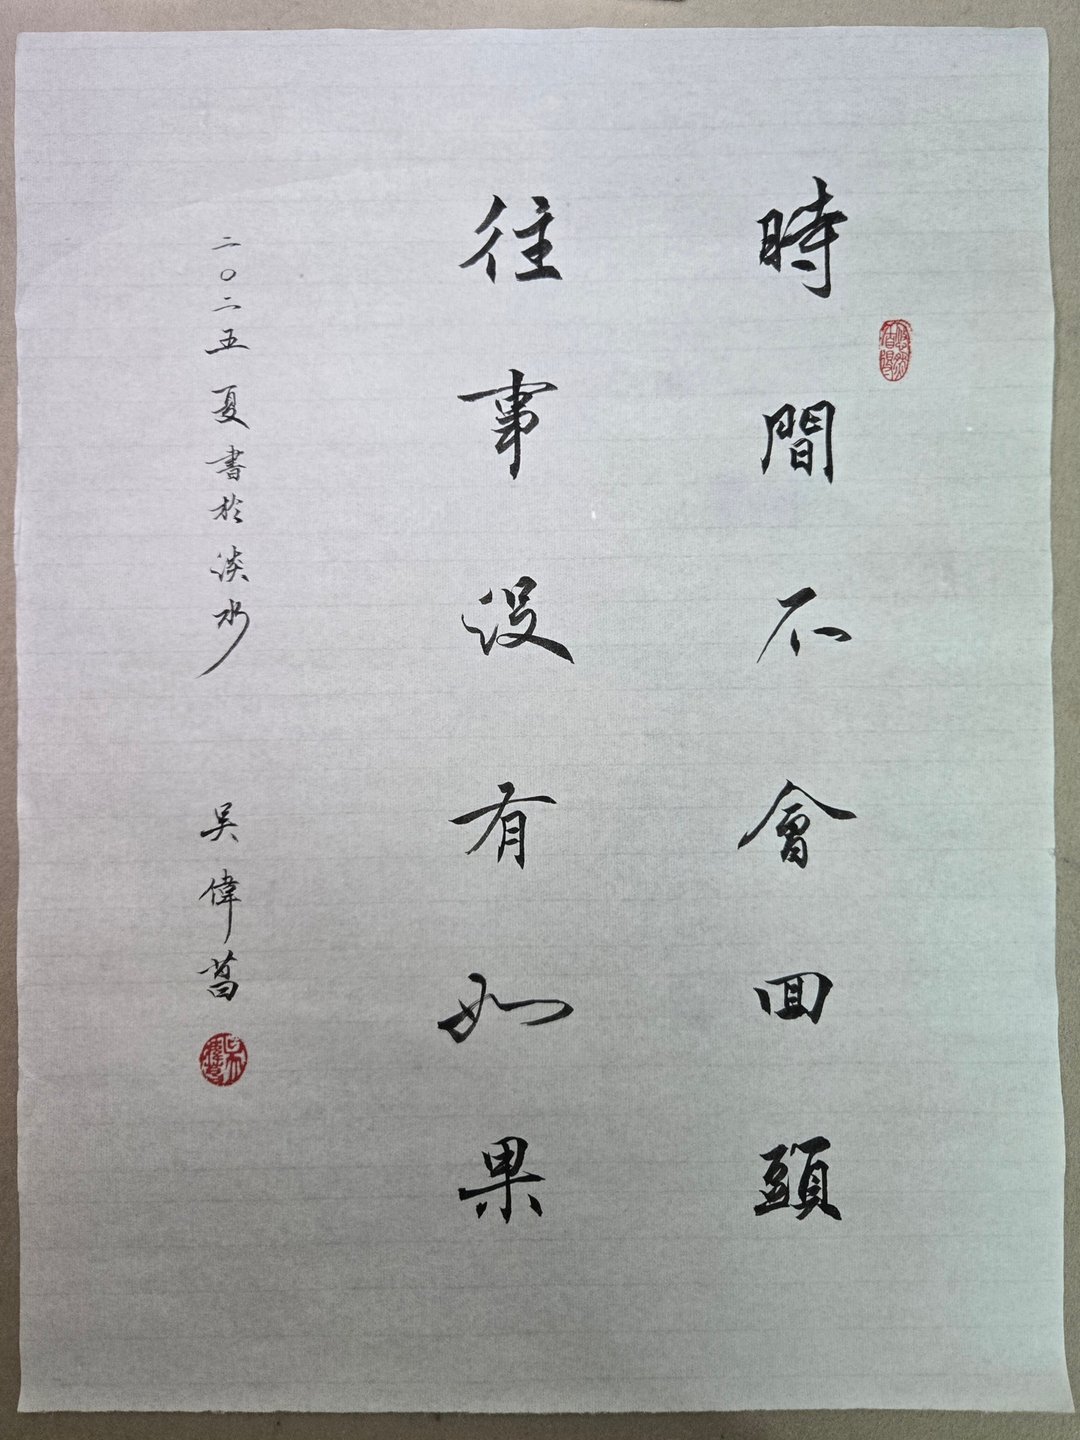 時間不會回頭
往事沒有如果
二〇二五夏書於淡水
吳偉菖